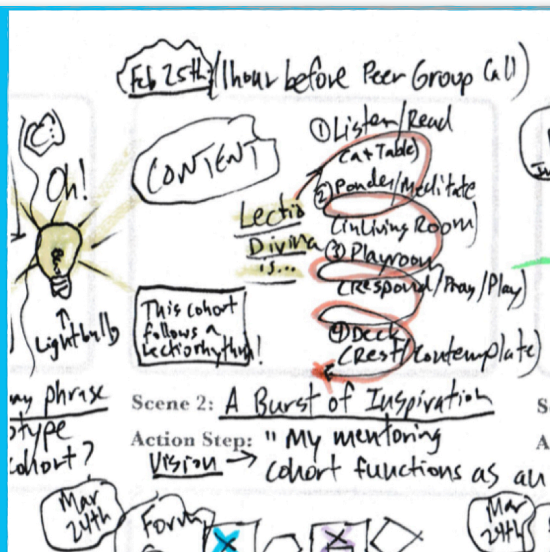 Feb 25th (1 hour before Peer Group Call)
Oh!
Lightbulb
CONTENT
Lectio
Divina
is...
① Listen/Read
(at Table)
② Ponder/Meditate
(in Living Room)
③ Playroom
(Respond/Pray/Play)
④ Deck
(Rest/Contemplate)
This cohort
follows a
Lectio rhythm!
my phrase
otype
cohort?
Scene 2: A Burst of Inspiration
Action Step: "My mentoring
Vision → cohort functions as an
Mar
24th
Forum
Mar
24th
S
A